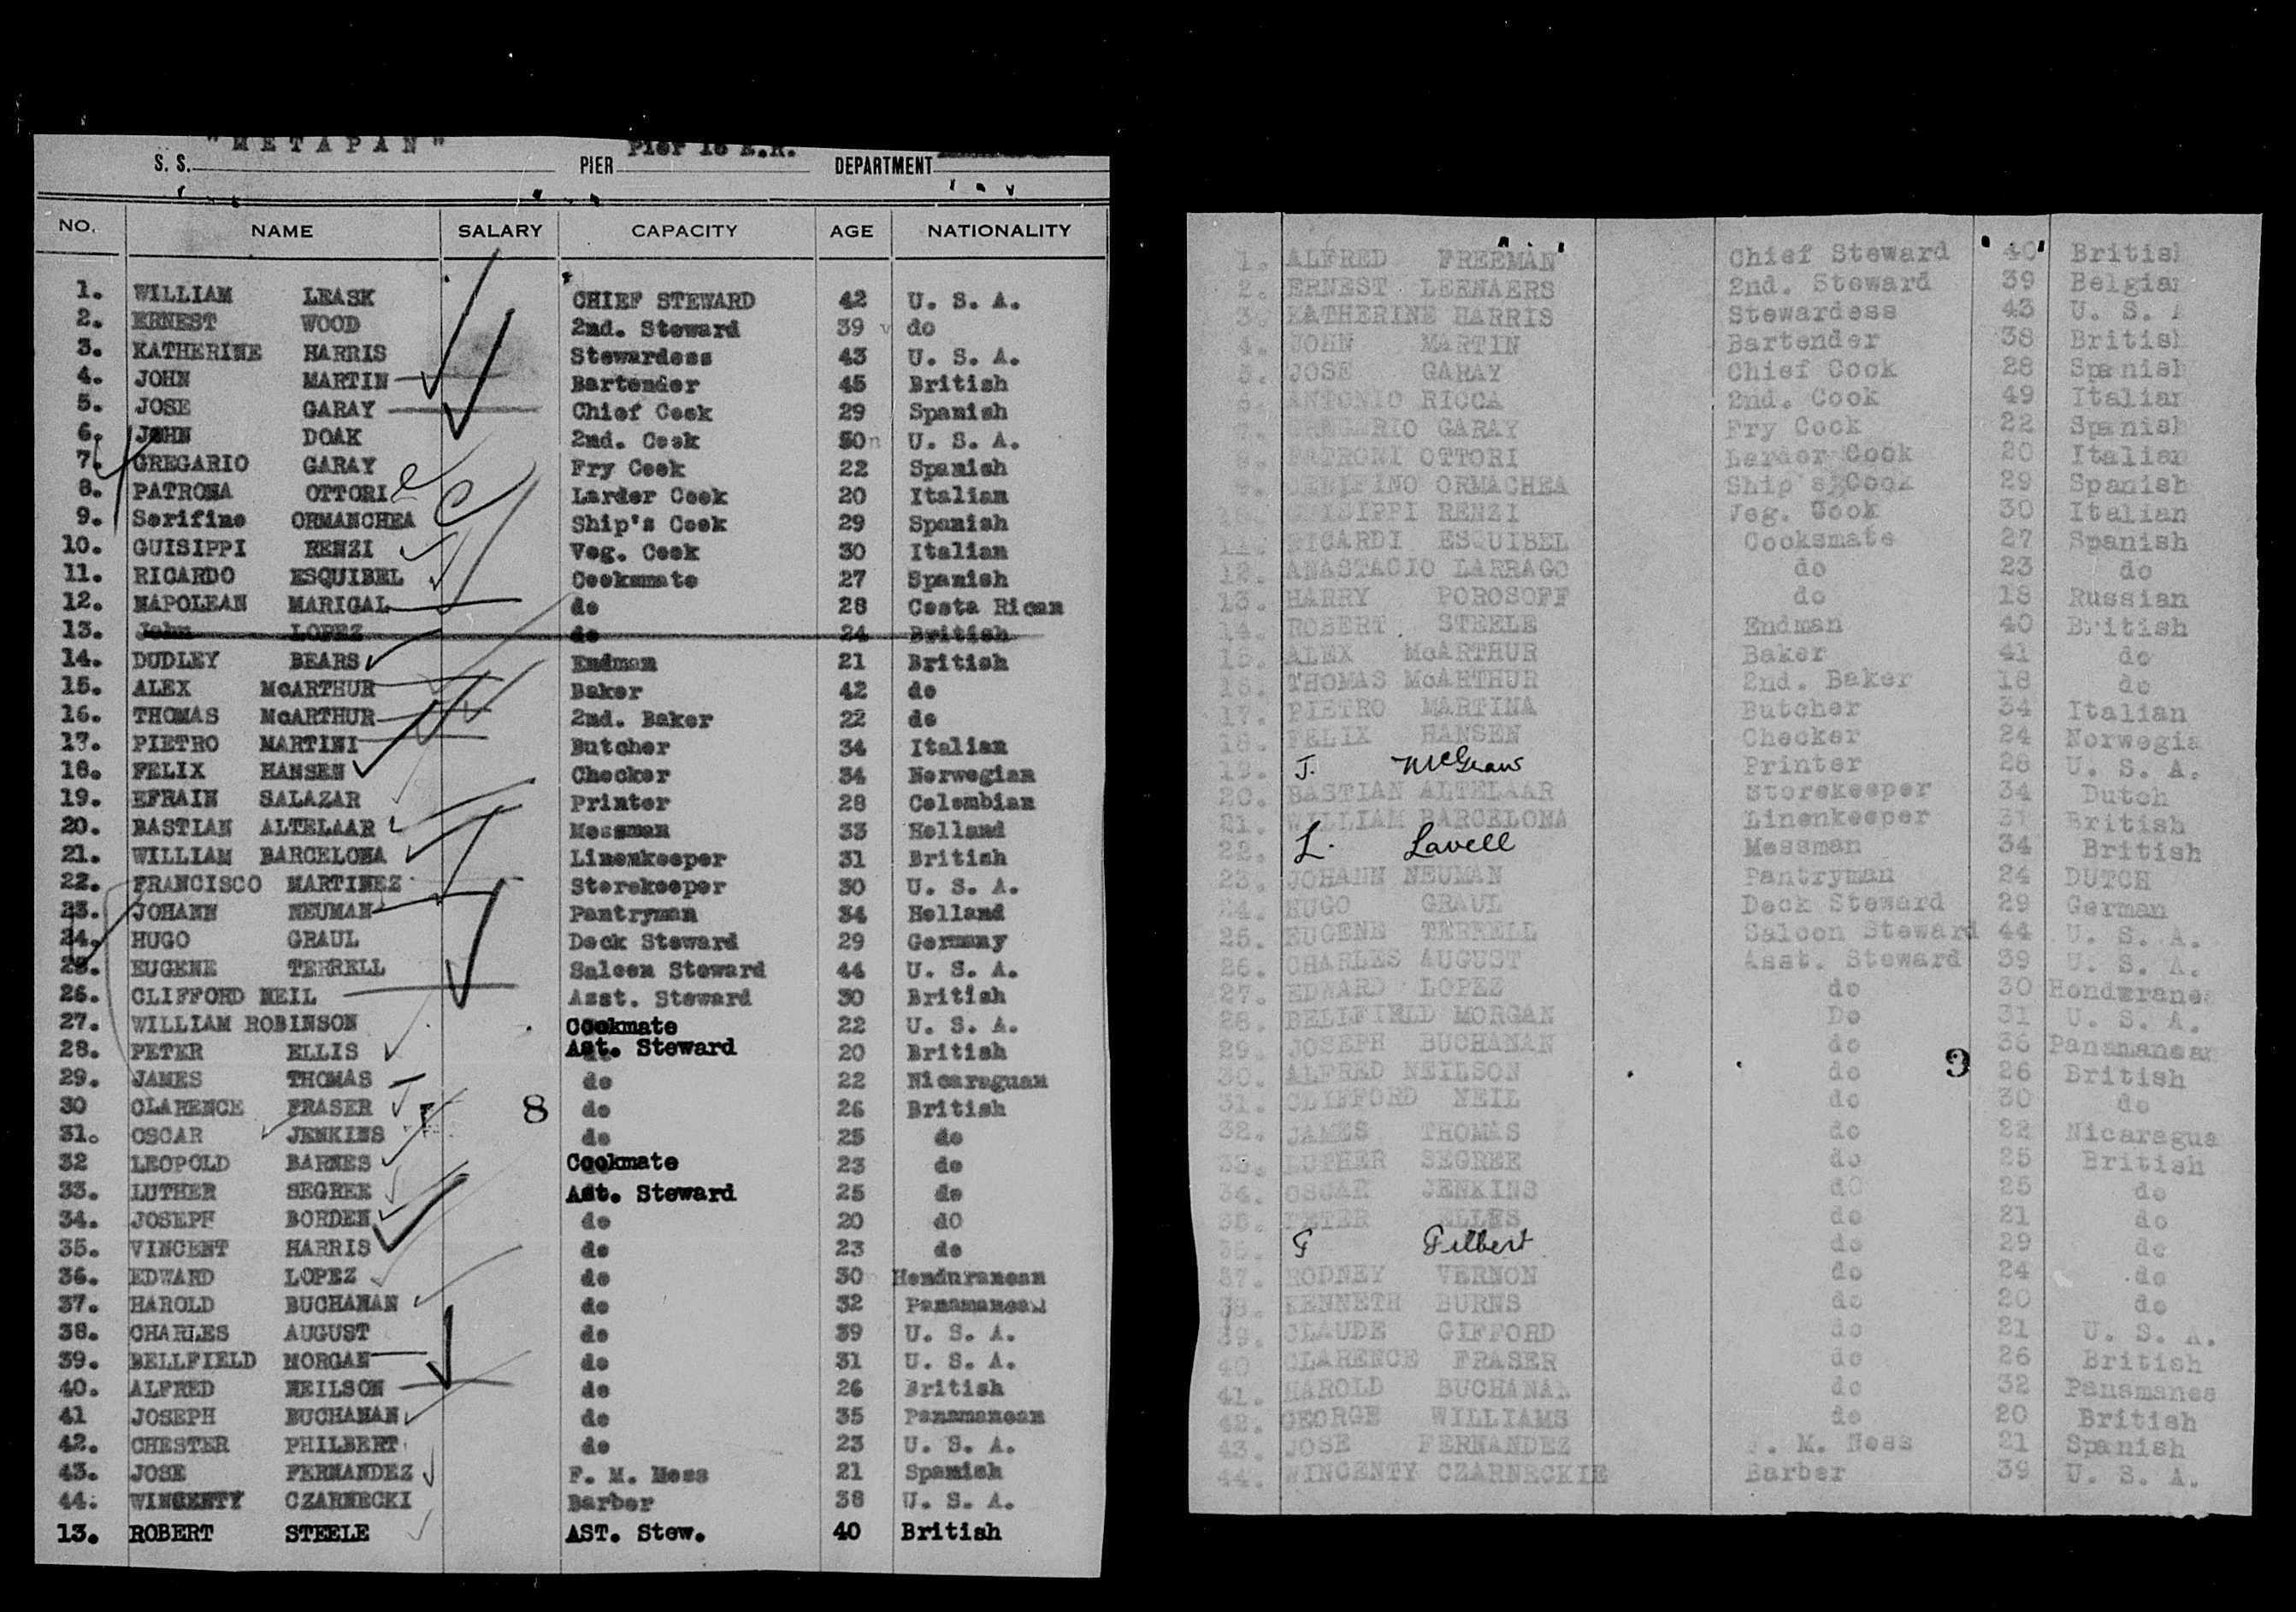 "METAPAN"
S. S. PIER Pier 16 E.R. DEPARTMENT
NO. NAME SALARY CAPACITY AGE NATIONALITY
1. WILLIAM LEASK CHIEF STEWARD 42 U. S. A.
2. ERNEST WOOD 2nd. Steward 39 do
3. KATHERINE HARRIS Stewardess 43 U. S. A.
4. JOHN MARTIN Bartender 45 British
5. JOSE GARAY Chief Cook 29 Spanish
6. JOHN DOAK 2nd. Cook 50 U. S. A.
7. GREGARIO GARAY Fry Cook 22 Spanish
8. PATRONA OTTORI Larder Cook 20 Italian
9. Serifino ORMANCHEA Ship's Cook 29 Spanish
10. GUISIPPI RENZI Veg. Cook 30 Italian
11. RICARDO ESQUIBEL Cooksmate 27 Spanish
12. NAPOLEAN MARIGAL do 28 Costa Rican
13. John LOPEZ do 24 British
14. DUDLEY BEARS Endman 21 British
15. ALEX McARTHUR Baker 42 do
16. THOMAS McARTHUR 2nd. Baker 22 do
17. PIETRO MARTINI Butcher 34 Italian
18. FELIX HANSEN Checker 34 Norwegian
19. EFRAIN SALAZAR Printer 28 Colombian
20. BASTIAN ALTELAAR Messman 33 Holland
21. WILLIAM BARCELONA Linenkeeper 31 British
22. FRANCISCO MARTINEZ Storekeeper 30 U. S. A.
23. JOHANN NEUMAN Pantryman 34 Holland
24. HUGO GRAUL Deck Steward 29 Germany
25. EUGENE TERRELL Saloon Steward 44 U. S. A.
26. CLIFFORD NEIL Asst. Steward 30 British
27. WILLIAM ROBINSON Cookmate 22 U. S. A.
28. PETER ELLIS Ast. Steward 20 British
29. JAMES THOMAS do 22 Nicaraguan
30 CLARENCE FRASER 8 do 26 British
31. OSCAR JENKINS do 25 do
32 LEOPOLD BARNES Cookmate 23 do
33. LUTHER SEGREE Ast. Steward 25 do
34. JOSEPH BORDEN do 20 dO
35. VINCENT HARRIS do 23 do
36. EDWARD LOPEZ do 30 Honduranean
37. HAROLD BUCHANAN do 32 Panamanean
38. CHARLES AUGUST do 39 U. S. A.
39. BELLFIELD MORGAN do 31 U. S. A.
40. ALFRED NEILSON do 26 British
41 JOSEPH BUCHANAN do 35 Panamanean
42. CHESTER PHILBERT do 23 U. S. A.
43. JOSE FERNANDEZ F. M. Mess 21 Spanish
44. WINCENTY CZARNECKI Barber 38 U. S. A.
13. ROBERT STEELE AST. Stew. 40 British
1. ALFRED FREEMAN Chief Steward 40 British
2. ERNEST LEENAERS 2nd. Steward 39 Belgian
3. KATHERINE HARRIS Stewardess 43 U. S. A
4. JOHN MARTIN Bartender 38 British
5. JOSE GARAY Chief Cook 28 Spanish
6. ANTONIO RICCA 2nd. Cook 49 Italian
7. GREGARIO GARAY Fry Cook 22 Spanish
8. PATRONI OTTORI Larder Cook 20 Italian
9. SERIFINO ORMACHEA Ship's Cook 29 Spanish
10. GUISIPPI RENZI Veg. Cook 30 Italian
11. RICARDI ESQUIBEL Cooksmate 27 Spanish
12. ANASTACIO LARRAGO do 23 do
13. HARRY POROSOFF do 18 Russian
14. ROBERT STEELE Endman 40 British
15. ALEX McARTHUR Baker 41 do
16. THOMAS McARTHUR 2nd. Baker 18 do
17. PIETRO MARTINA Butcher 34 Italian
18. FELIX HANSEN Checker 24 Norwegia
19. J. McGraw Printer 28 U. S. A.
20. BASTIAN ALTELAAR Storekeeper 34 Dutch
21. WILLIAM BARCELONA Linenkeeper 31 British
22. L. Lavell Messman 34 British
23. JOHANN NEUMAN Pantryman 24 DUTCH
24. HUGO GRAUL Deck Steward 29 German
25. EUGENE TERRELL Saloon Steward 44 U. S. A.
26. CHARLES AUGUST Asst. Steward 39 U. S. A.
27. EDWARD LOPEZ do 30 Honduranea
28. BELLFIELD MORGAN Do 31 U. S. A.
29. JOSEPH BUCHANAN do 36 Panamanean
30. ALFRED NEILSON do 9 26 British
31. CLIFFORD NEIL do 30 do
32. JAMES THOMAS do 22 Nicaragua
33. LUTHER SEGREE do 25 British
34. OSCAR JENKINS dO 25 do
35. PETER ELLES do 21 do
36. G Gilbert do 29 do
37. RODNEY VERNON do 24 do
38. KENNETH BURNS do 20 do
39. CLAUDE GIFFORD do 21 U. S. A.
40 CLARENCE FRASER do 26 British
41. HAROLD BUCHANAN do 32 Panamanea
42. GEORGE WILLIAMS do 20 British
43. JOSE FERNANDEZ F. M. Mess 21 Spanish
44. WINCENTY CZARNECKIE Barber 39 U. S. A.